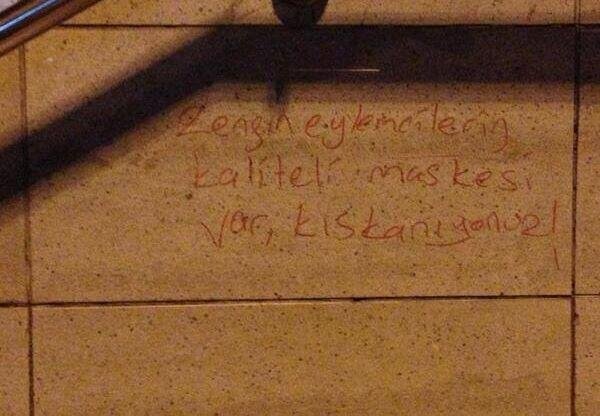 Zengin eylemcilerin
kaliteli maskesi
var, kıskanıyoruz!